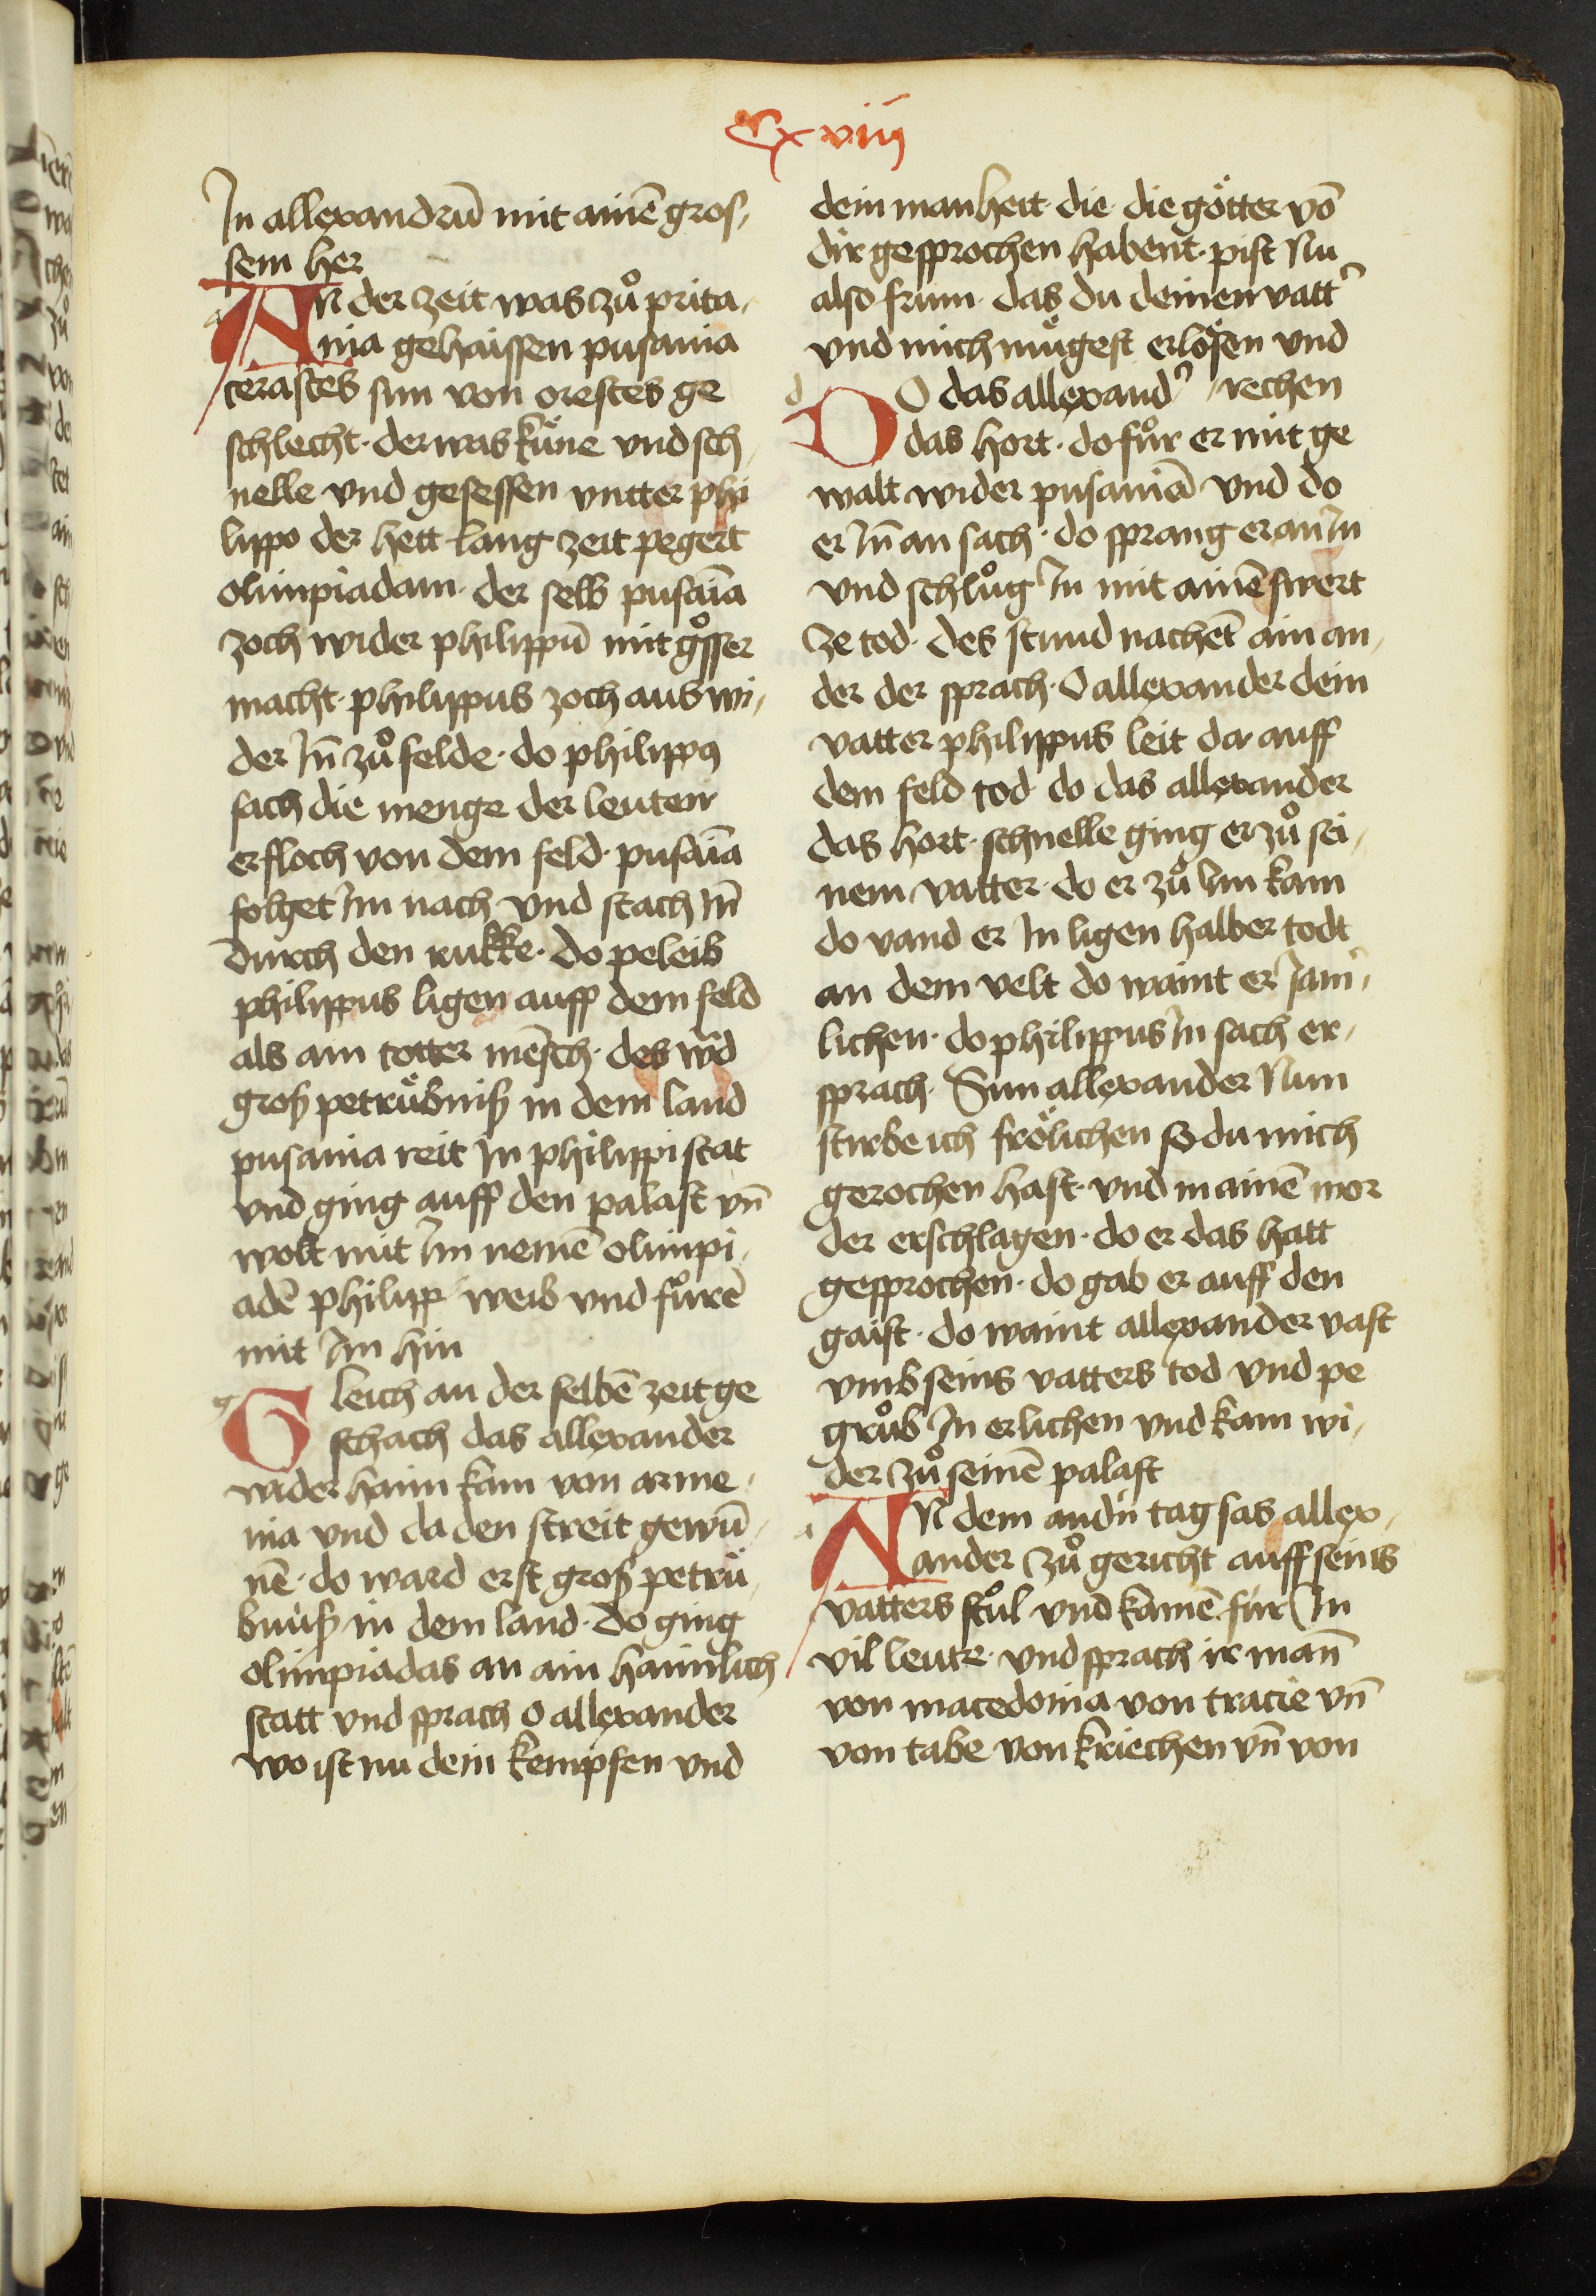 Cxviij
In allexandrū mit ainē gros,
sem her
AN der zeit was zů prita,
nia gehaissen pusania
cerastes sun von orestes ge
schlecht · der was küne vnd sch,
nelle vnd gesessen vntter phi
lippo der hett lang zeit pegert
olimpiadam · der selb pusaīa
zoch wider philippū mit gͦsser
macht · philippus zoch aus wi,
der In̄ zů felde · do philippꝰ
sach die menge der leuten
er floch von dem feld · pusaīa
folget Im nach vnd stach In̄
durch den rukke · do peleib
philippus ligen auff dem feld
als ain totter mēsch · des w̄d
groß petrübniß in dem land
pusania reit In philippi stat
vnd ging auff den palast vn̄
wolt mit Im nemē olimpi,
adē philipp weib vnd fůrē
mit Im hin
Gleich an der selbē zeit ge
schach das allexander
wider haim kam von arme,
nia vnd da den streit gewū,
nē · do ward erst groß petrü,
bnuß in dem land · do ging
olimpiadas an ain haimlich
statt vnd sprach O allexander
wo ist nu dein kempfen vnd
dein manheit · die · die götter vō
dir gesprochen habent · pist Nu
also frum · das du deinen vattʾ
vnd mich mügest erlösen vnd
DO das allexandʾ / rechen
das hort · do fůr er mit ge
walt wider pusaniā · vnd do
er In̄ an sach · do sprang er an In
vnd schlůg In mit ainē swert
ze tod · des stund nachēt ain an,
der der sprach · O allexander dein
vatter philippus leit da auff
dem feld tod do das allexander
das hort · schnelle ging er zů sei,
nem vatter · do er zů Im kam
do vand er In ligen halber todt
an dem velt do waint er Jam̾,
lichen · do philippus In sach er,
sprach · Sun allexander Nun
stirbe ich frölichen so du mich
gerochen hast · vnd mainē mor
der erschlagen · do er das hatt
gesprochen · do gab er auff den
gaist · do waint allexander vast
vmb seins vatters tod vnd pe
grůb In erlichen vnd kam wi,
der zů seinē palast
AN dem andʾn tag sas allex,
ander zů gericht auff seins
vatters stůl vnd kamē für In
vil leute · vnd sprach ir man̄
von macedonia von tracie vn̄
von tabe von kriechen vn̄ von